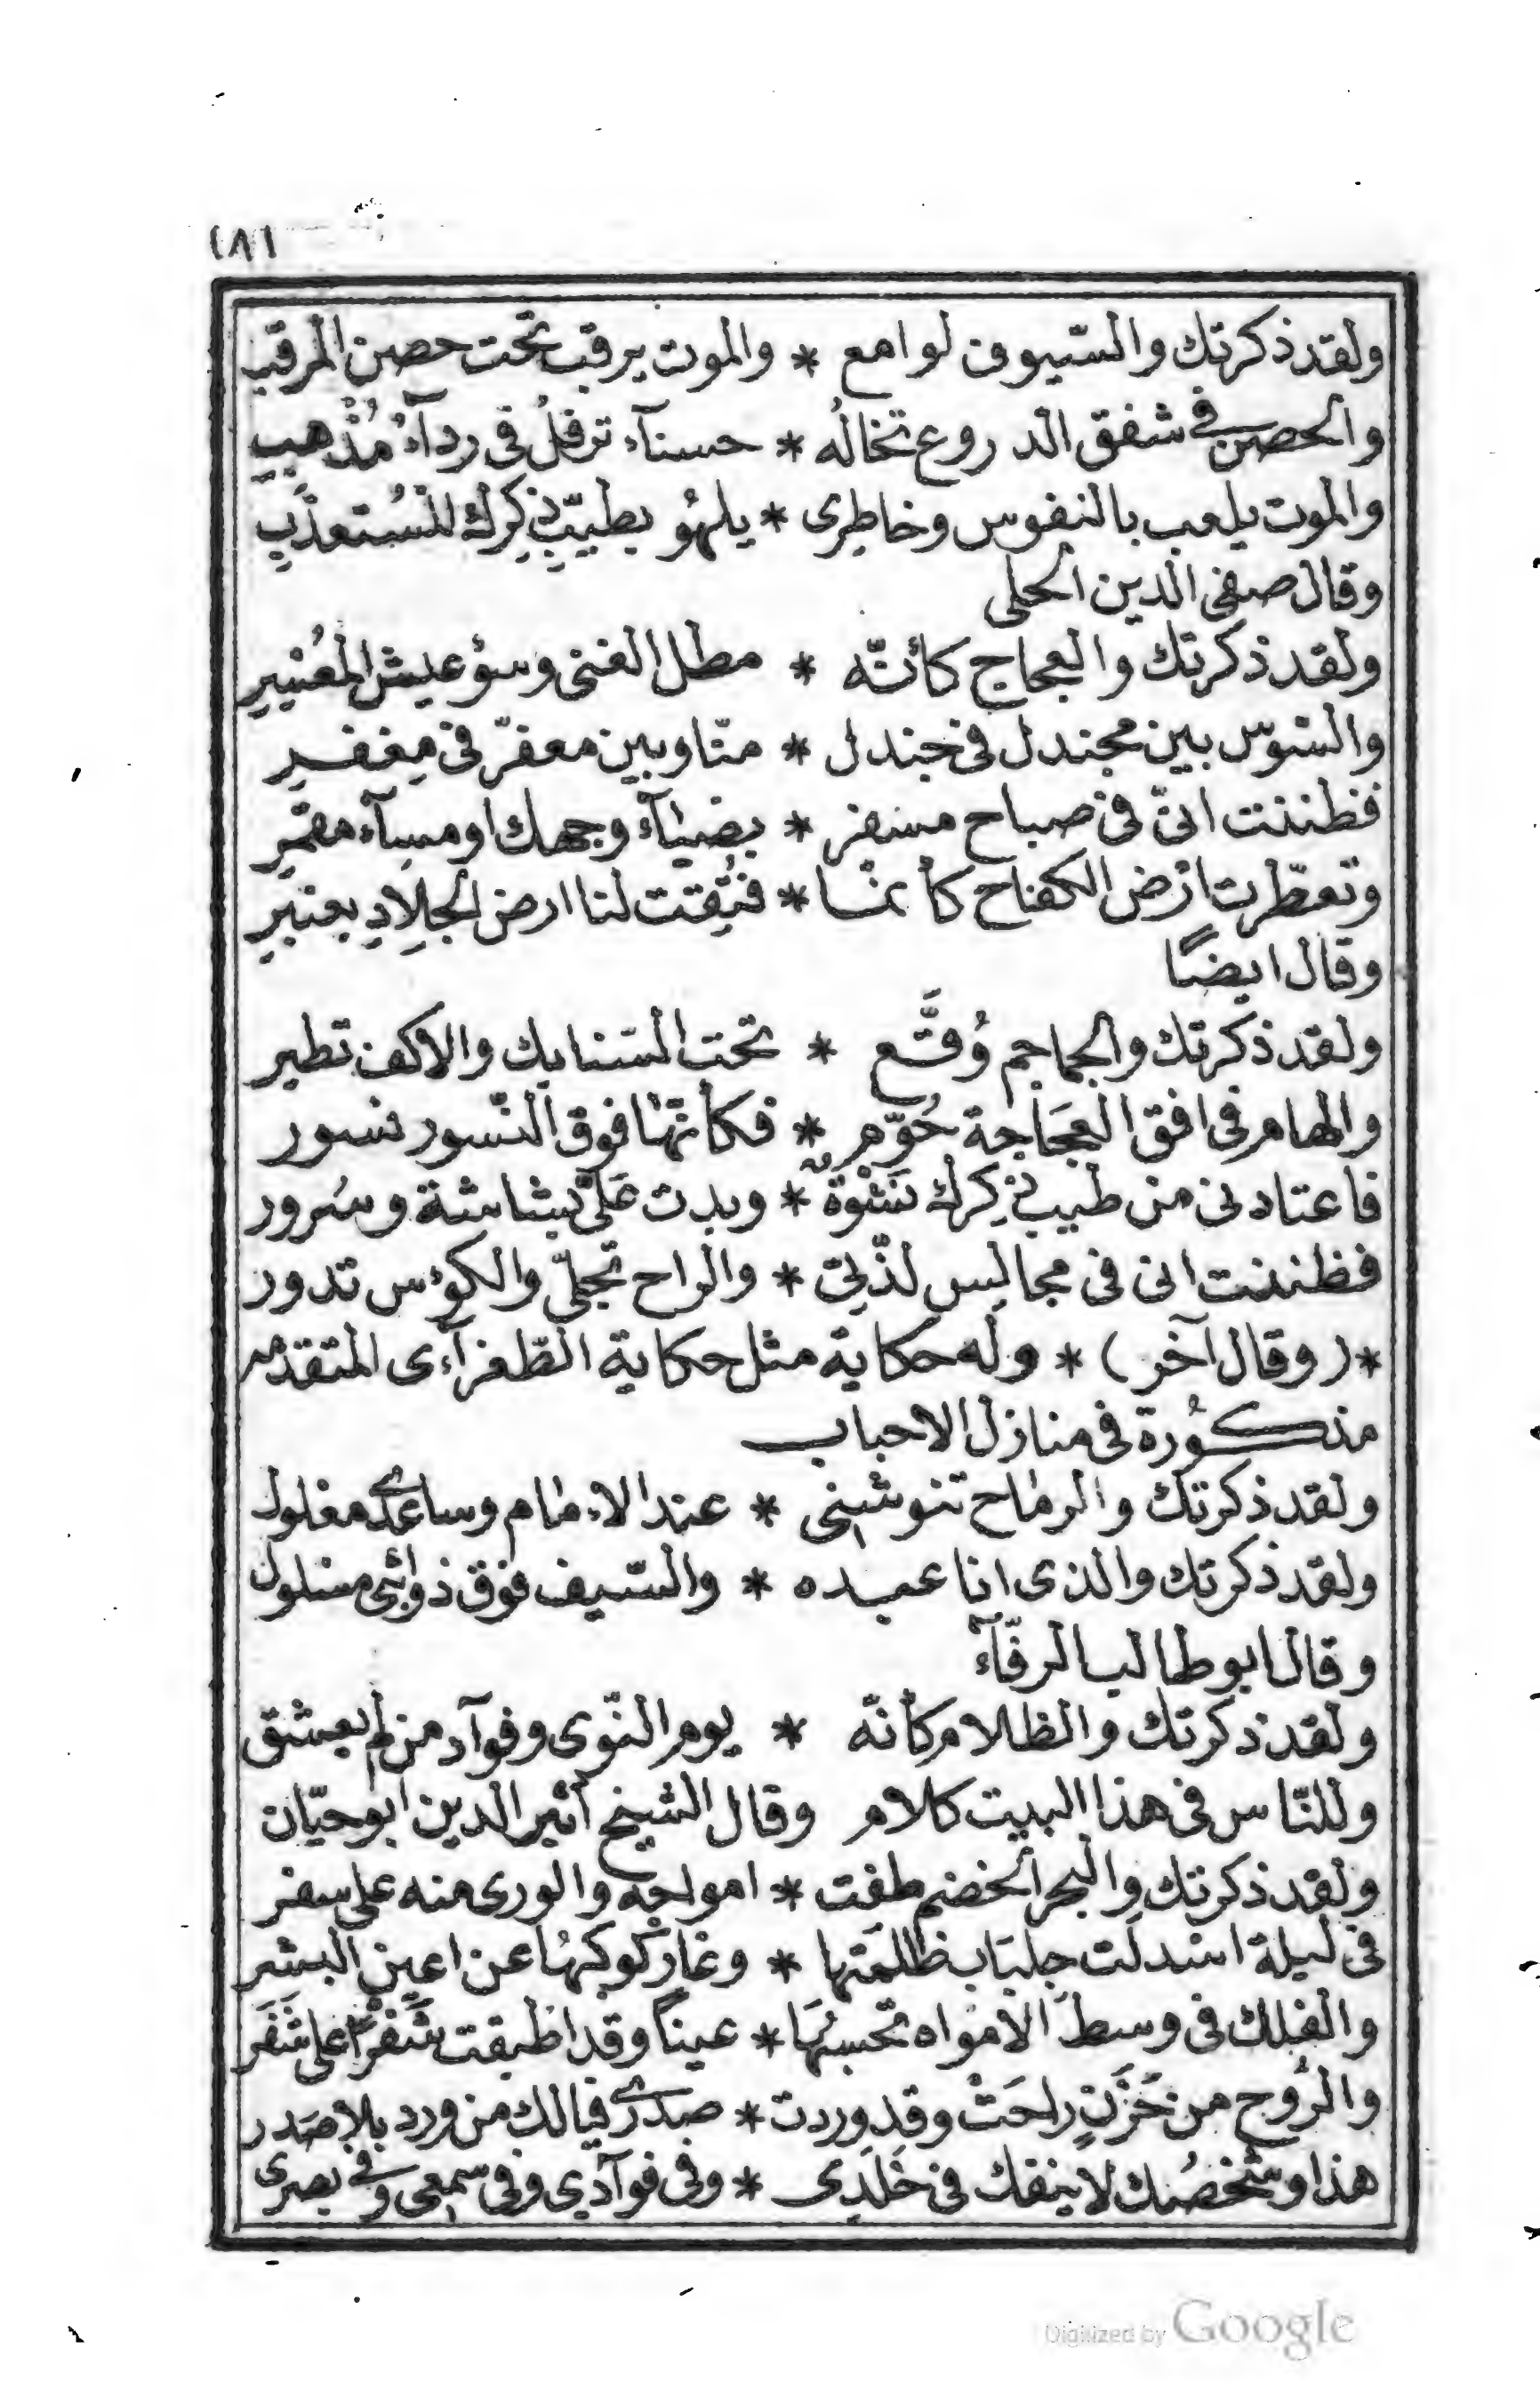 ١٨١
ولقد ذكرتك والسّيوف لوامع * والموت يرقب تحت حصن المرقب
والحصن فى شفق الدروع تخالُه * حسنآء ترفلُ فى ردآءٍ مُذْهبِ
والموت يلعب بالنفوس وخاطِرى * يلهُو بطيبِ ذِكرِك المُستعذَبِ
وقال صفى الدين الحلى
ولقد ذكرتك والعجاج كأنّه * مطل الغنى وسؤ عيش المُعْسِرِ
والشوس بين مجندل فى جندل * منّا وبين معفّر فى مِغفرِ
فظننت انّى فى صباح مسفر * بضيآء وجهك او مسآء مقمرِ
وتعطّرت ارْض الكفاح كأنّما * فُتِقت لنا ارض الجِلادِ بعنبرِ
وقال ايضًا
ولقد ذكرتك والجماجم وُقَّع * تحت السّنابك والاكف تطير
والهام فى افق العَجَاجة حُوّم * فكأنّها فوق النّسور نسور
فاعتادنى من طيب ذِكرك نَشْوةٌ * وبدت عَلىّ بشاشة وسُرور
فظننت انى فى مجالِس لذّتى * والراح تجلىّ والكوٴس تدور
*(وقال آخر)* وله حكاية مثل حكاية الطّغرآءى المتقدّم
مذكوُرة فى منازل الاحباب
ولقد ذكرتك والرماح تنوشنى * عند الاءمام وساعدى مغلول
ولقد ذكرتك والذى انا عبده * والسّيف فوق ذوابتى مسلول
وقال ابوطالب الرفّآء
ولقد ذكرتك والظلام كأنّه * يوم النّوى وفوآد من لم يعشق
وللنّاس فى هذا البيت كلام وقال الشيخ أثير الدين ابوحيّان
ولقد ذكرتك والبحر الخضم طغت * امواجه والورى منه على سفر
فى ليلة اسْدلَت جلبَاب ظلمَتها * وغار كوكبهُا عن اعين البشر
والفلك فى وسط الامْواه تحْسبهُا * عيناً وقد اطبقت شَفْراً على شَفَر
والرُوح من حَزَنٍ راحَتْ وقد وردت * صدرى فيالك من ورد بلا صَدر
هذا وشخصُك لا ينفك فى خَلَدى * وفى فوآدي وفى سمعى وفى بصرى
Digitized by Google